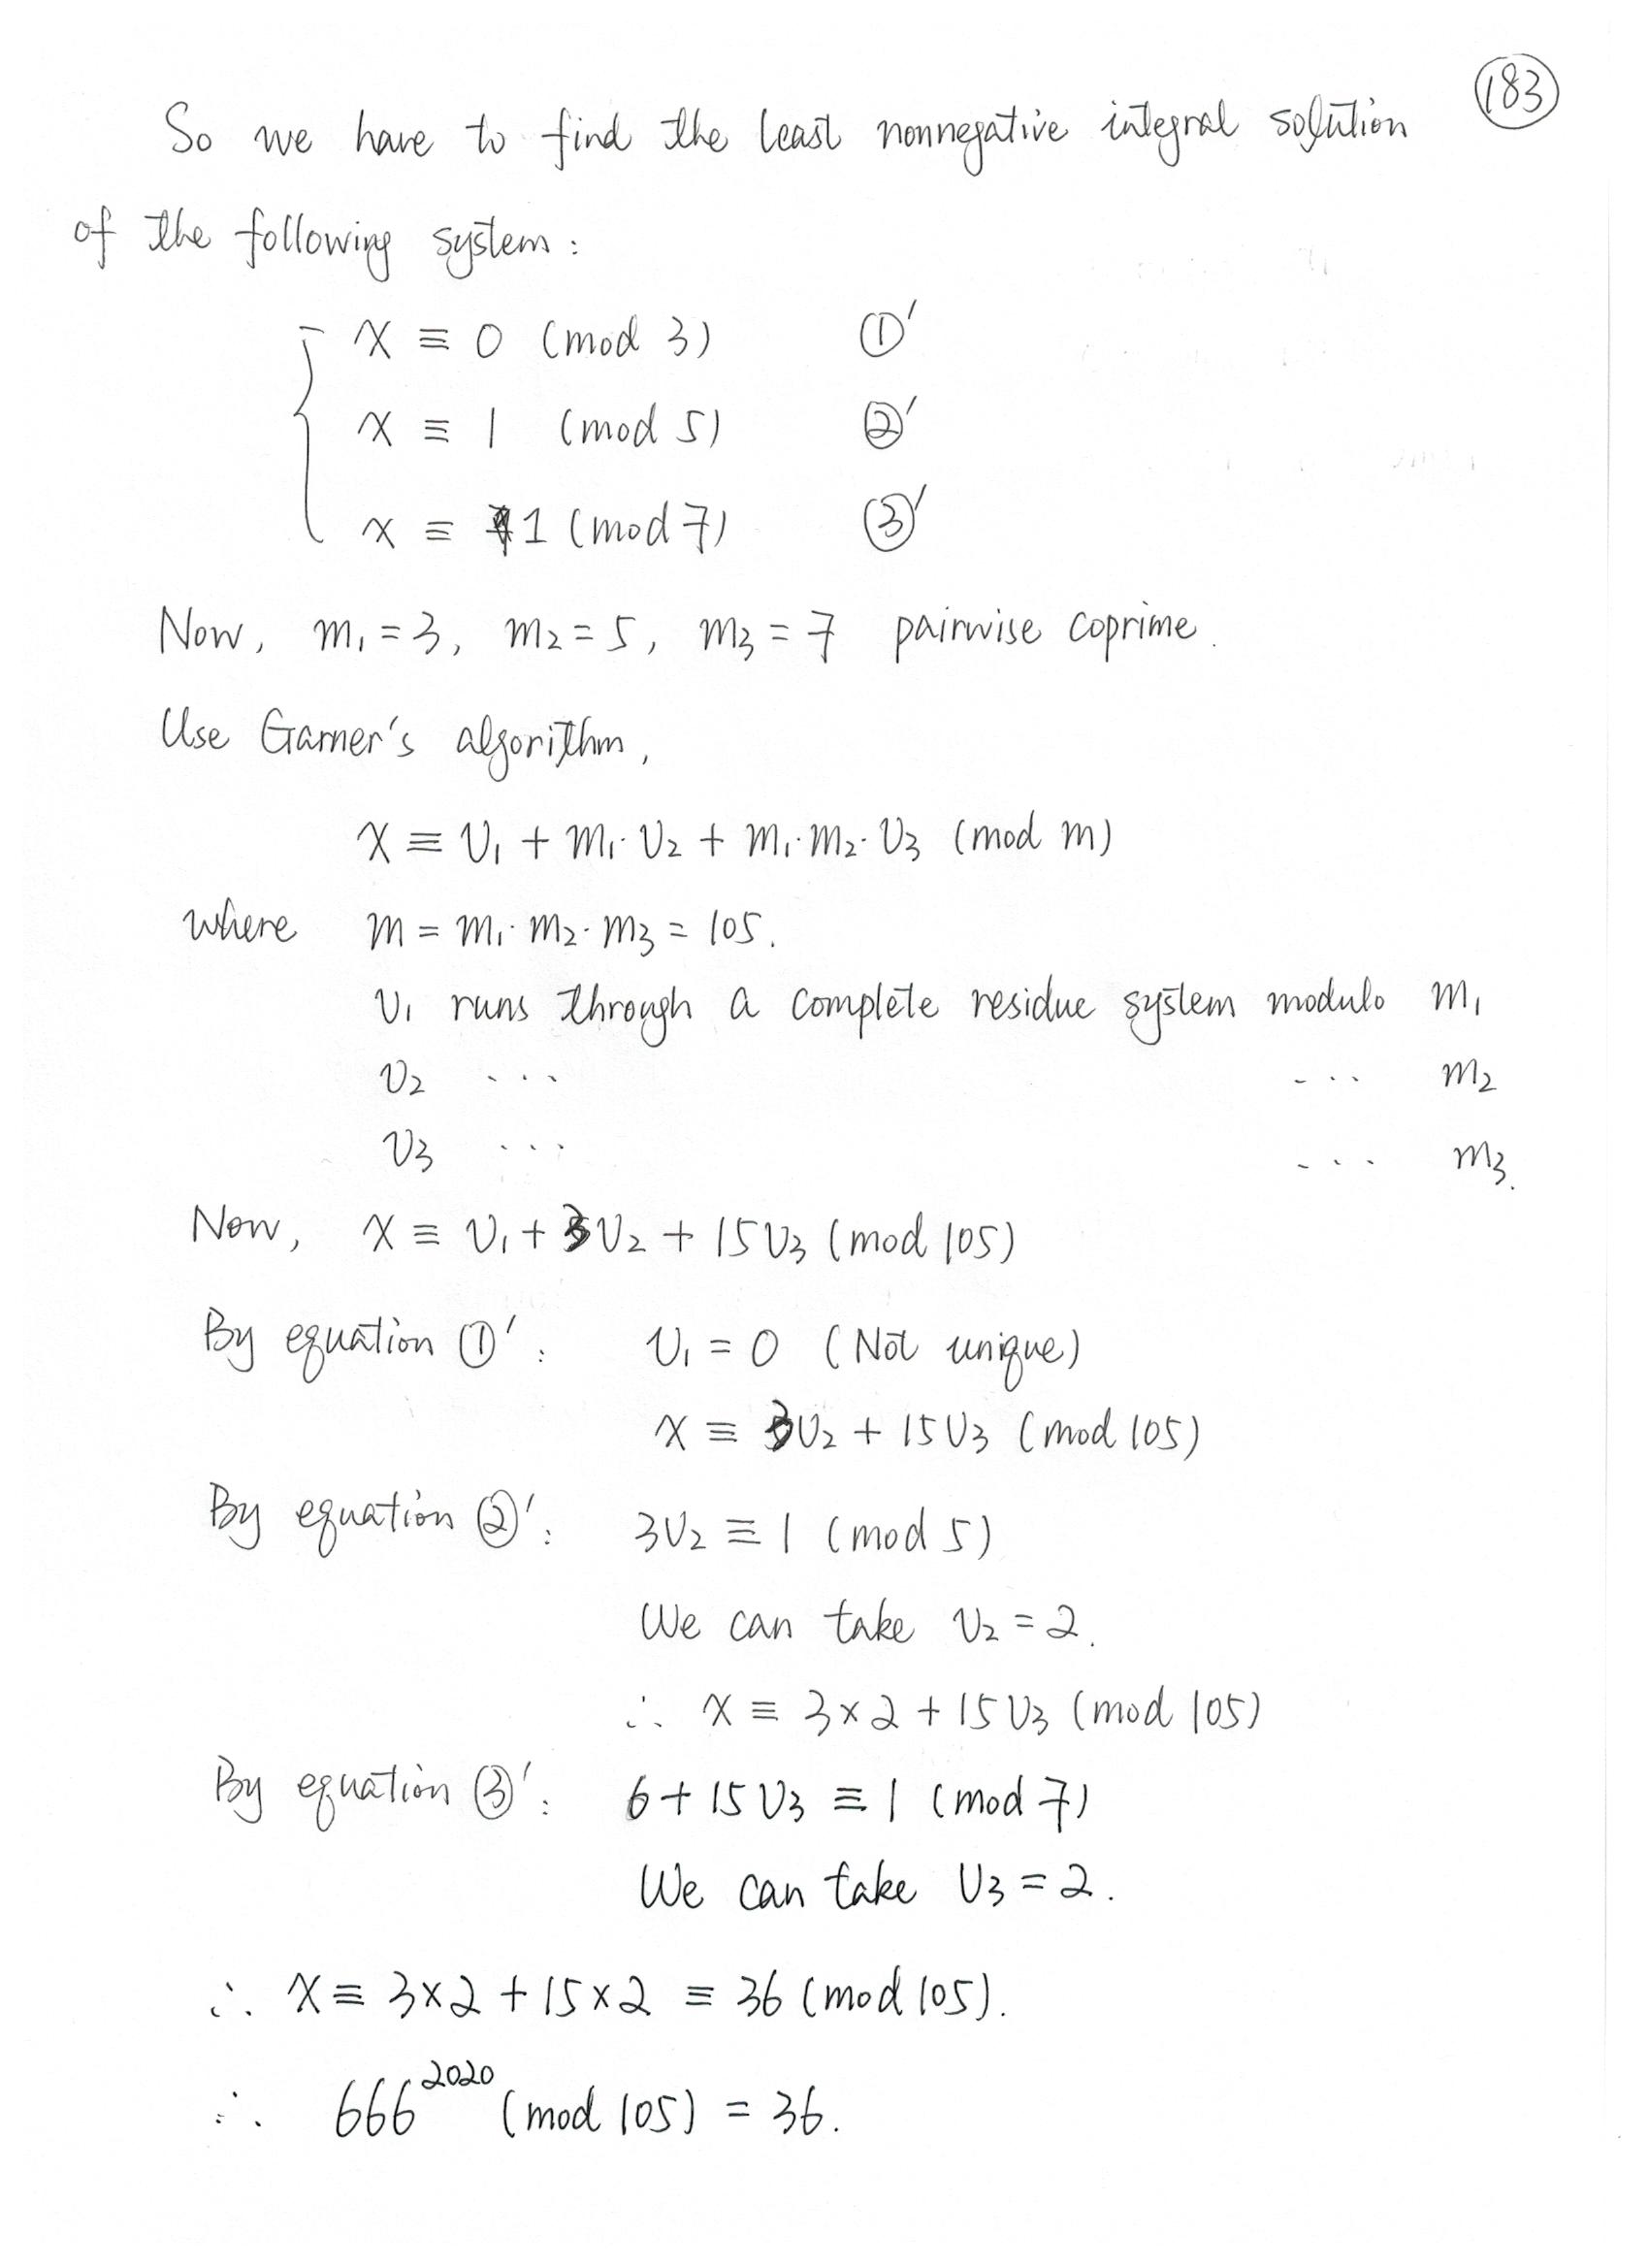 183
So we have to find the least nonnegative integral solution
of the following system:
x ≡ 0 (mod 3) ①′
x ≡ 1 (mod 5) ②′
x ≡ 1 (mod 7) ③′
Now, m₁ = 3, m₂ = 5, m₃ = 7 pairwise coprime.
Use Garner's algorithm,
x ≡ v₁ + m₁·v₂ + m₁·m₂·v₃ (mod m)
where m = m₁·m₂·m₃ = 105.
v₁ runs through a complete residue system modulo m₁
v₂ ... ... m₂
v₃ ... ... m₃.
Now, x ≡ v₁ + 3v₂ + 15v₃ (mod 105)
By equation ①′: v₁ = 0 (Not unique)
x ≡ 3v₂ + 15v₃ (mod 105)
By equation ②′: 3v₂ ≡ 1 (mod 5)
We can take v₂ = 2.
∴ x ≡ 3×2 + 15v₃ (mod 105)
By equation ③′: 6 + 15v₃ ≡ 1 (mod 7)
We can take v₃ = 2.
∴ x ≡ 3×2 + 15×2 ≡ 36 (mod 105).
∴ 666²⁰²⁰ (mod 105) = 36.